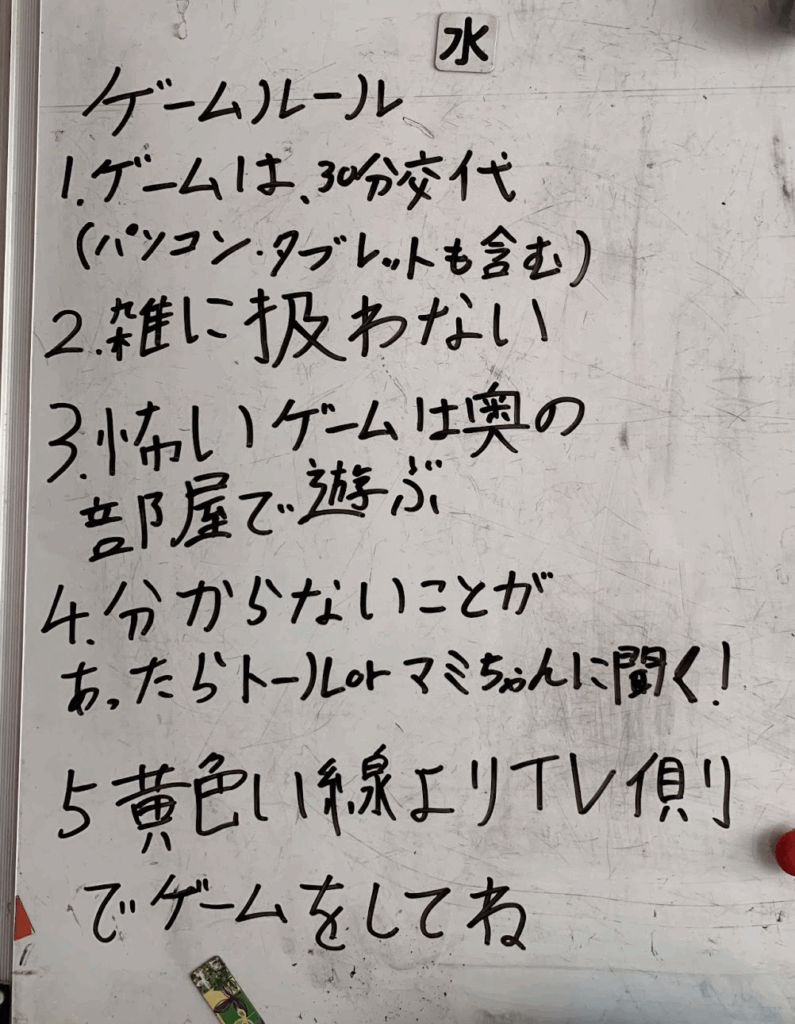 水
ゲームルール
1.ゲームは、30分交代
(パソコン・タブレットも含む)
2.雑に扱わない
3.怖いゲームは奥の
部屋で遊ぶ
4.分からないことが
あったらトールorマミちゃんに聞く!
5黄色い線よりTV側
でゲームをしてね